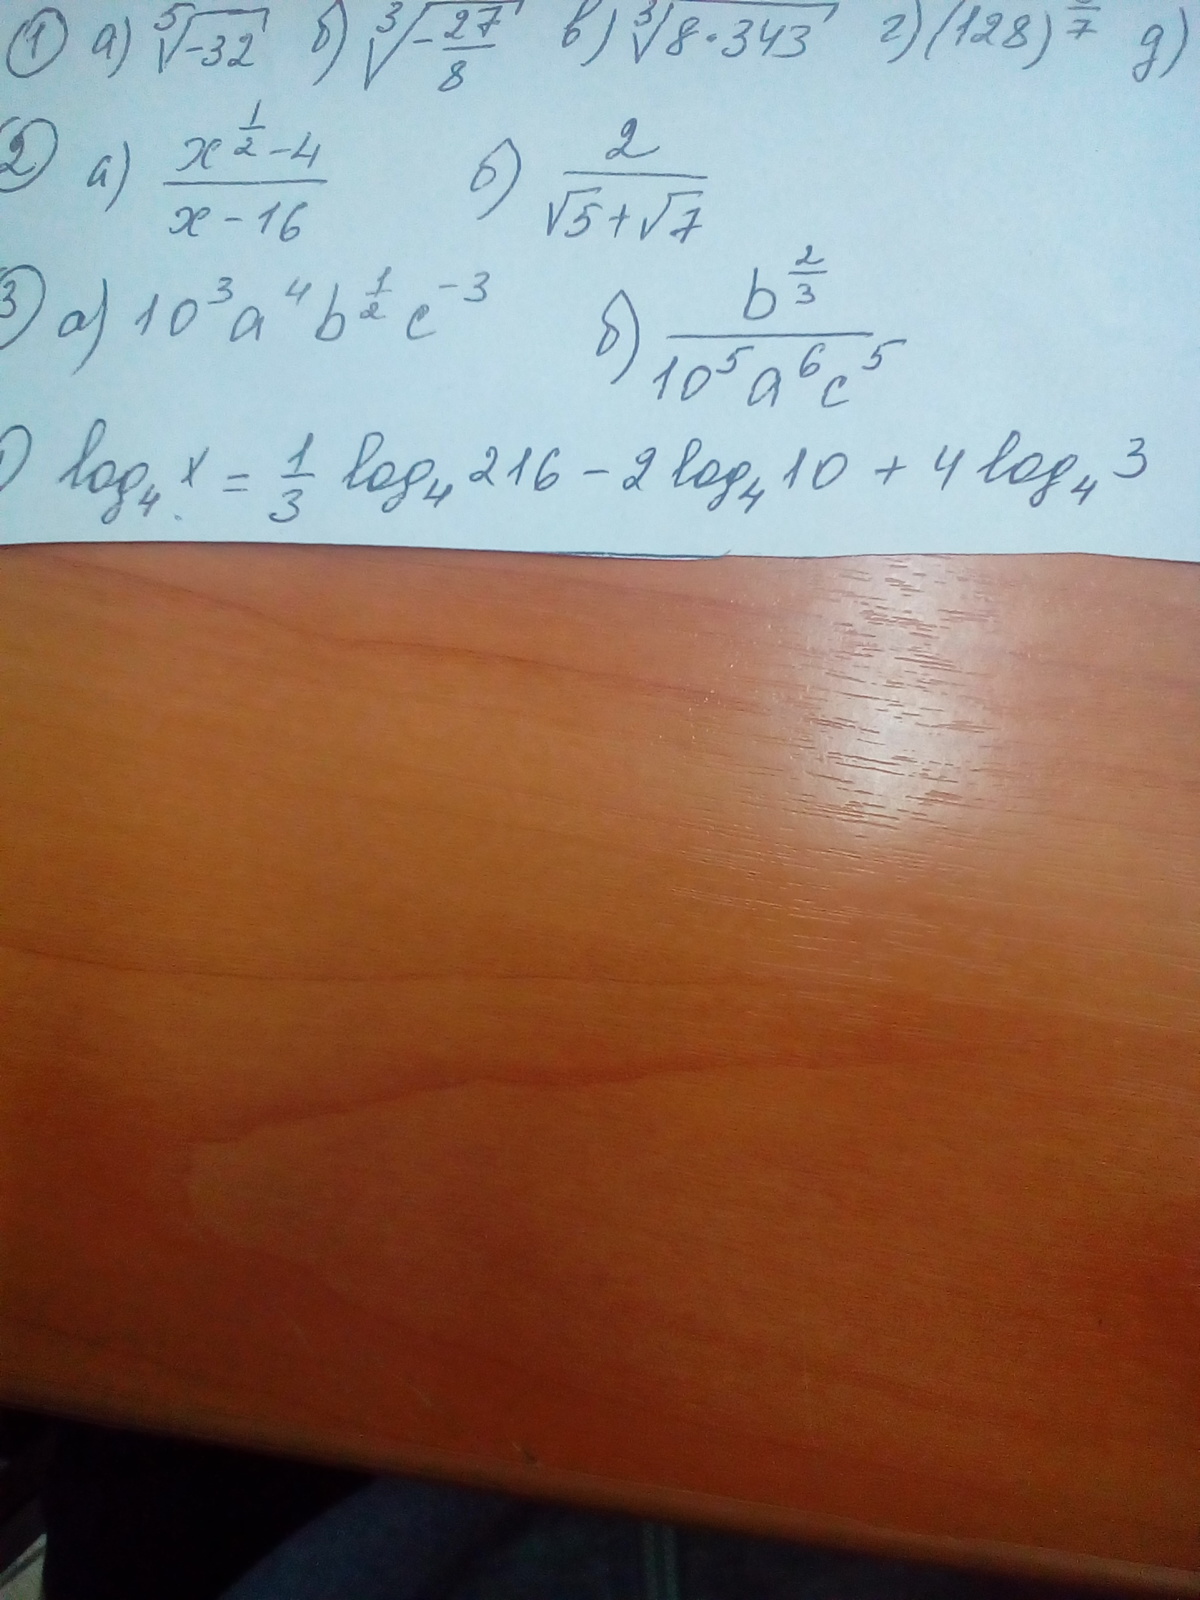 ① а) ⁵√-32 б) ³√-27/8 в) ³√8·343 г) (128) /7 д)
2) а) (x^(1/2) - 4)/(x - 16) б) 2/(√5 + √7)
3) а) 10³a⁴b^(1/2)c⁻³ б) b^(2/3)/(10⁵a⁶c⁵)
) log₄ x = 1/3 log₄ 216 - 2 log₄ 10 + 4 log₄ 3